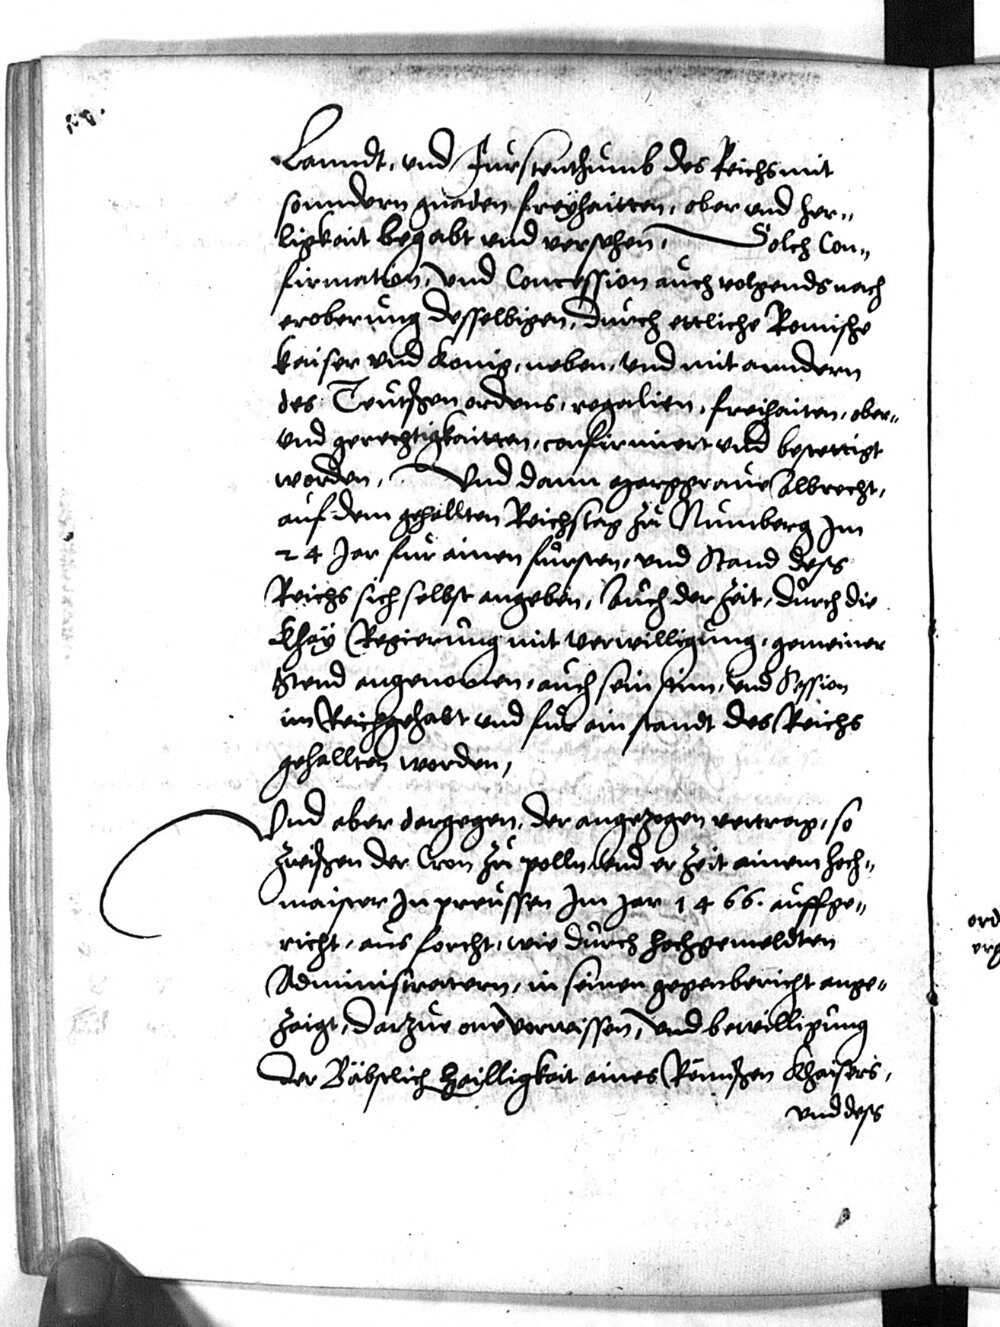 Lanndt, und Fürstenthumb des Reichs mit
sonndern gnaden freyhaitten, ober und her„
ligkait begabt und versehen, Solch Con„
firmation, Und Concession auch volgends nach
eroberung desselbigen, durch ettliche Romische
kaiser und konig, neben, und mit anndern
des Teutschen ordens, regalien, freihaiten, ober„
und gerechtigkaitten, confirmiert und bestettigt
worden, Und dann Marggraue Albrecht,
auf dem gehallten Reichstag zu Nurnberg Im
24 Jar für ainen fürsten, und Stand dess
Reichs sich selbst angeben, Auch der Zeit, durch die
Khay Regierung mit verwilligung, gemeiner
Stend angenomen, auch sein stim, und Session
im Reich gehabt und für ein standt des Reichs
gehallten worden,
Und aber dargegen, der angezogen vertrag, so
zwischen der Cron zu polln und er Zeit ainem hoch„
maister In preussen Im Jar 1466. auffge„
richt, aus forcht, wie durch hochgemeldten
Administratorn, in seinen gegenbericht ange„
zaigt, darzue one vorwissen, und bewilligung
der Bäbstlich Hailligkait eines Römischen Khaisers,
und dess